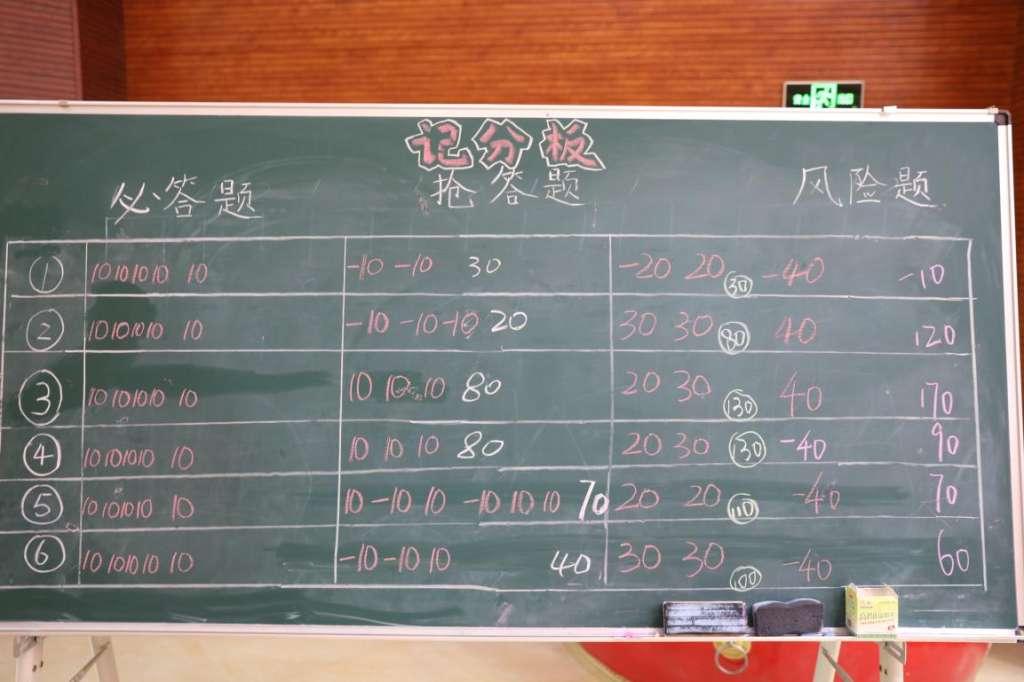 记分板
必答题 抢答题 风险题
① 10 10 10 10 10 -10 -10 30 -20 20 30 -40 -10
② 10 10 10 10 10 -10 -10 -10 20 30 30 80 40 120
③ 10 10 10 10 10 10 10 10 80 20 30 130 40 170
④ 10 10 10 10 10 10 10 10 80 20 30 130 -40 90
⑤ 10 10 10 10 10 10 -10 10 -10 10 10 70 20 20 110 -40 70
⑥ 10 10 10 10 10 -10 -10 10 40 30 30 100 -40 60